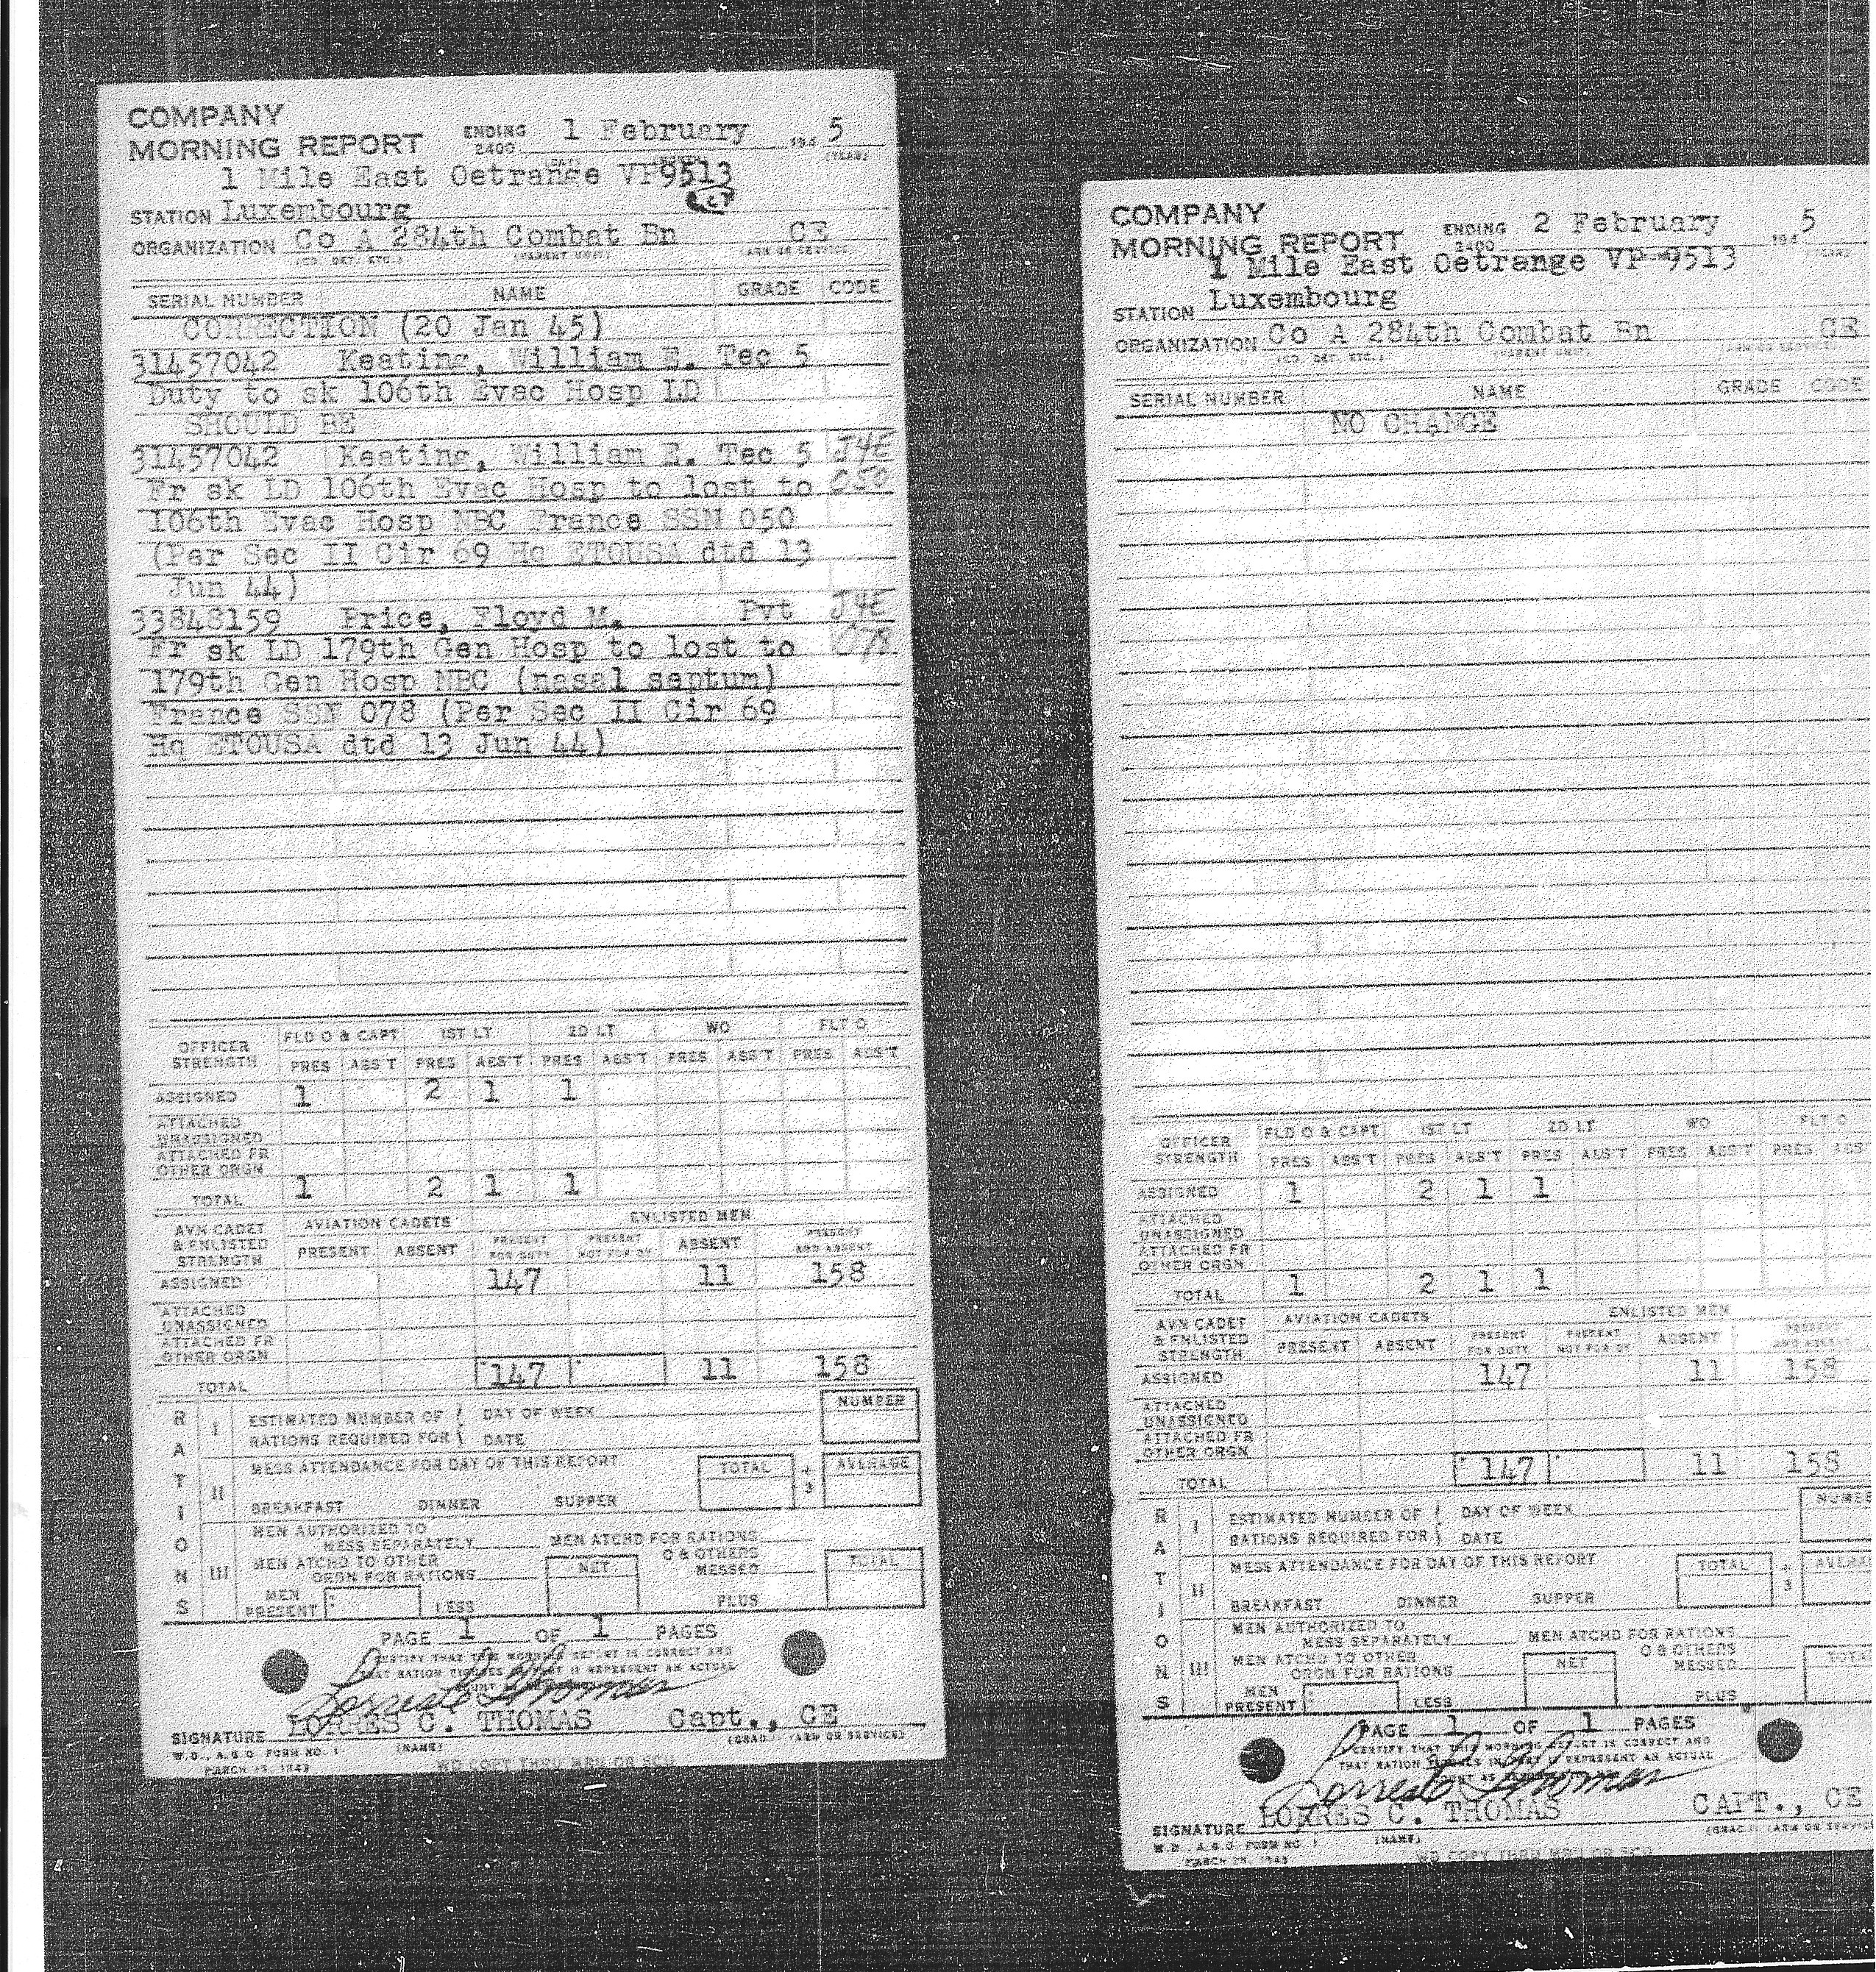 COMPANY
MORNING REPORT ENDING 2400 1 February 194 5
(DAY) (MONTH) (YEAR)
1 Mile East Oetrange VP9513
STATION Luxembourg
ORGANIZATION Co A 284th Combat Bn CE
(CO. DET. ETC.) (PARENT UNIT) (ARM OR SERVICE)
SERIAL NUMBER NAME GRADE CODE
CORRECTION (20 Jan 45)
31457042 Keating, William E. Tec 5
Duty to sk 106th Evac Hosp LD
SHOULD BE
31457042 Keating, William E. Tec 5 J4E
Fr sk LD 106th Evac Hosp to lost to 050
106th Evac Hosp NBC France SSN 050
(Per Sec II Cir 69 Hq ETOUSA dtd 13
Jun 44)
33848159 Price, Floyd M. Pvt J4E
Fr sk LD 179th Gen Hosp to lost to 078
179th Gen Hosp NBC (nasal septum)
France SSN 078 (Per Sec II Cir 69
Hq ETOUSA dtd 13 Jun 44)
OFFICER STRENGTH FLD O & CAPT 1ST LT 2D LT WO FLT O
PRES ABS'T PRES ABS'T PRES ABS'T PRES ABS'T PRES ABS'T
ASSIGNED 1 2 1 1
ATTACHED UNASSIGNED
ATTACHED FR OTHER ORGN
TOTAL 1 2 1 1
AVN CADET & ENLISTED STRENGTH AVIATION CADETS ENLISTED MEN
PRESENT ABSENT PRESENT FOR DUTY PRESENT NOT FOR DY ABSENT PRESENT AND ABSENT
ASSIGNED 147 11 158
ATTACHED UNASSIGNED
ATTACHED FR OTHER ORGN
TOTAL 147 11 158
RATIONS
I ESTIMATED NUMBER OF RATIONS REQUIRED FOR DAY OF WEEK DATE NUMBER
II MESS ATTENDANCE FOR DAY OF THIS REPORT TOTAL ÷ 3 AVERAGE
BREAKFAST DINNER SUPPER
III MEN AUTHORIZED TO MESS SEPARATELY MEN ATCHD FOR RATIONS
MEN ATCHD TO OTHER ORGN FOR RATIONS NET O & OTHERS MESSED TOTAL
MEN PRESENT LESS PLUS
PAGE 1 OF 1 PAGES
I CERTIFY THAT THIS MORNING REPORT IS CORRECT AND
THAT RATION FIGURES IN PART II REPRESENT AN ACTUAL
COUNT AS
SIGNATURE LORRES C. THOMAS Capt., CE
(NAME) (GRADE) (ARM OR SERVICE)
W.D., A.G.O. FORM NO. 1
MARCH 25, 1943
WD COPY THRU MRU OR SCU
COMPANY
MORNING REPORT ENDING 2400 2 February 194 5
1 Mile East Oetrange VP-9513
STATION Luxembourg
ORGANIZATION Co A 284th Combat Bn CE
(CO. DET. ETC.) (PARENT UNIT)
SERIAL NUMBER NAME GRADE CODE
NO CHANGE
OFFICER STRENGTH FLD O & CAPT 1ST LT 2D LT WO FLT O
PRES ABS'T PRES ABS'T PRES ABS'T PRES ABS'T PRES ABS
ASSIGNED 1 2 1 1
ATTACHED UNASSIGNED
ATTACHED FR OTHER ORGN
TOTAL 1 2 1 1
AVN CADET & ENLISTED STRENGTH AVIATION CADETS ENLISTED MEN
PRESENT ABSENT PRESENT FOR DUTY PRESENT NOT FOR DY ABSENT PRESENT AND ABSENT
ASSIGNED 147 11 158
ATTACHED UNASSIGNED
ATTACHED FR OTHER ORGN
TOTAL 147 11 158
RATIONS
I ESTIMATED NUMBER OF RATIONS REQUIRED FOR DAY OF WEEK DATE NUMBE
II MESS ATTENDANCE FOR DAY OF THIS REPORT TOTAL ÷ 3 AVERA
BREAKFAST DINNER SUPPER
III MEN AUTHORIZED TO MESS SEPARATELY MEN ATCHD FOR RATIONS
MEN ATCHD TO OTHER ORGN FOR RATIONS NET O & OTHERS MESSED TOTA
MEN PRESENT LESS PLUS
PAGE 1 OF 1 PAGES
I CERTIFY THAT THIS MORNING REPORT IS CORRECT AND
THAT RATION FIGURES IN PART II REPRESENT AN ACTUAL
COUNT AS
SIGNATURE LORRES C. THOMAS CAPT., CE
(NAME) (GRADE) (ARM OR SERVICE
W.D., A.G.O. FORM NO. 1
MARCH 25, 1943
WD COPY THRU MRU OR SCU